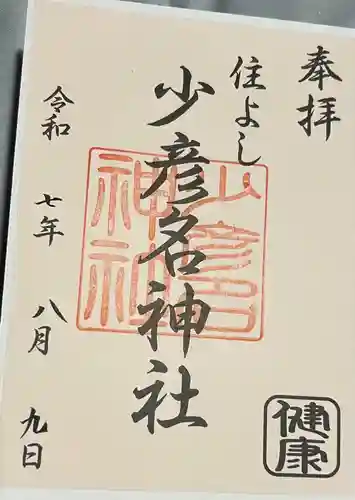 奉拝
住よし
少彦名神社
少彦名
神社
令和 七年 八月 九日
健康